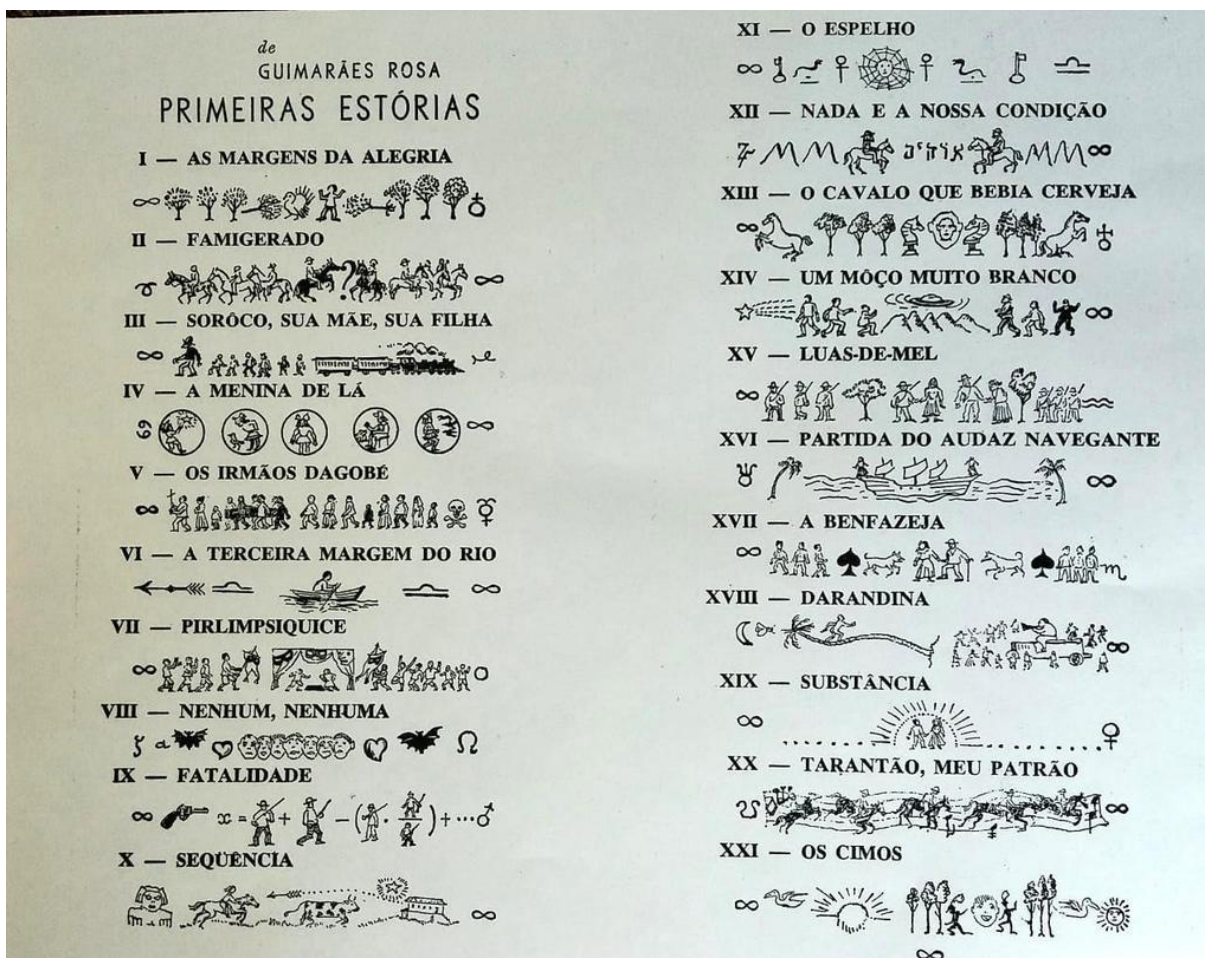 de
GUIMARÃES ROSA
PRIMEIRAS ESTÓRIAS
I — AS MARGENS DA ALEGRIA
II — FAMIGERADO
III — SORÔCO, SUA MÃE, SUA FILHA
IV — A MENINA DE LÁ
V — OS IRMÃOS DAGOBÉ
VI — A TERCEIRA MARGEM DO RIO
VII — PIRLIMPSIQUICE
VIII — NENHUM, NENHUMA
IX — FATALIDADE
X — SEQÜÊNCIA
XI — O ESPELHO
XII — NADA E A NOSSA CONDIÇÃO
XIII — O CAVALO QUE BEBIA CERVEJA
XIV — UM MÔÇO MUITO BRANCO
XV — LUAS-DE-MEL
XVI — PARTIDA DO AUDAZ NAVEGANTE
XVII — A BENFAZEJA
XVIII — DARANDINA
XIX — SUBSTÂNCIA
XX — TARANTÃO, MEU PATRÃO
XXI — OS CIMOS